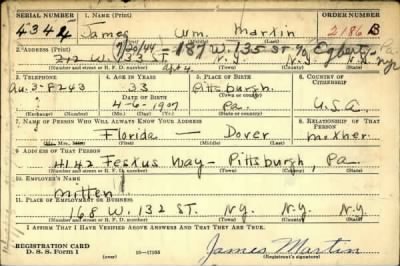 SERIAL NUMBER 1. NAME (Print) ORDER NUMBER
4342 James Wm. Martin 2186 B
(First) (Middle) (Last)
7/20/44 – 187 W. 135 ST c/o Egbert
2. ADDRESS (Print)
212 W. 133 ST. N.Y. N.Y. N.Y.
(Number and street or R. F. D. number) (Town) (County) (State)
apt 4
3. TELEPHONE 4. AGE IN YEARS 5. PLACE OF BIRTH 6. COUNTRY OF CITIZENSHIP
Au. 3-8243 33 Pittsburgh.
DATE OF BIRTH (Town or county)
4-6-1907 Pa. U.S.A.
(Exchange) (Number) (Mo.) (Day) (Yr.) (State or country)
7. NAME OF PERSON WHO WILL ALWAYS KNOW YOUR ADDRESS 8. RELATIONSHIP OF THAT PERSON
Florida — Dover mother
(Mr., Mrs., Miss) (First) (Middle) (Last)
9. ADDRESS OF THAT PERSON
4142 Festus Way - Pittsburgh, Pa.
(Number and street or R. F. D. number) (Town) (County) (State)
10. EMPLOYER'S NAME
Mitten
11. PLACE OF EMPLOYMENT OR BUSINESS
168 W. 132 ST. N.Y. N.Y. N.Y.
(Number and street or R. F. D. number) (Town) (County) (State)
I AFFIRM THAT I HAVE VERIFIED ABOVE ANSWERS AND THAT THEY ARE TRUE.
REGISTRATION CARD
D. S. S. Form 1 (over) 16—17105 James Martin
(Registrant's signature)